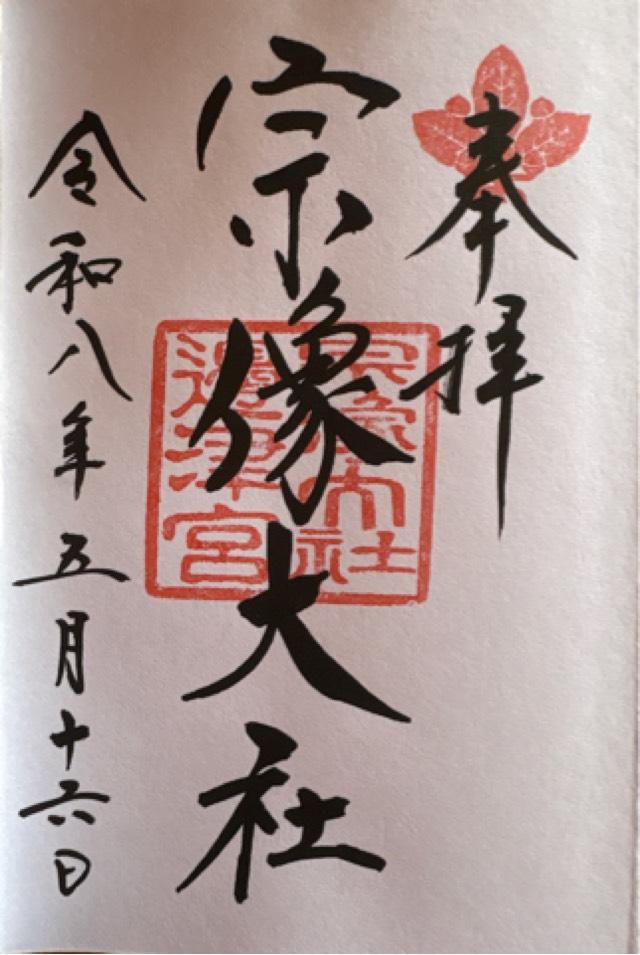 奉拝
宗像大社
宗像大社
邊津宮
令和八年五月十六日